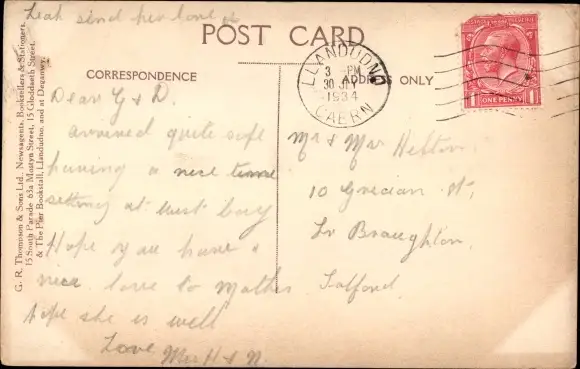 Leah send her love
POST CARD
CORRESPONDENCE
ADDRESS ONLY
LLANDUDNO
3 - PM
30 JY
1934
CAERN
ONE PENNY
G. R. Thompson & Sons Ltd., Newsagents, Booksellers & Stationers,
15 South Parade 63a Mostyn Street, 15 Gloddaeth Street,
& The Pier Bookstall, Llandudno, and at Deganwy.
Dear G & D.
arrived quite safe
having a nice time
sitting at West bay
Hope you have a
nice love to Mother
hope she is well
Love Mr H & N.
Mr & Mrs
10 Grecian St,
Lr Broughton,
Salford